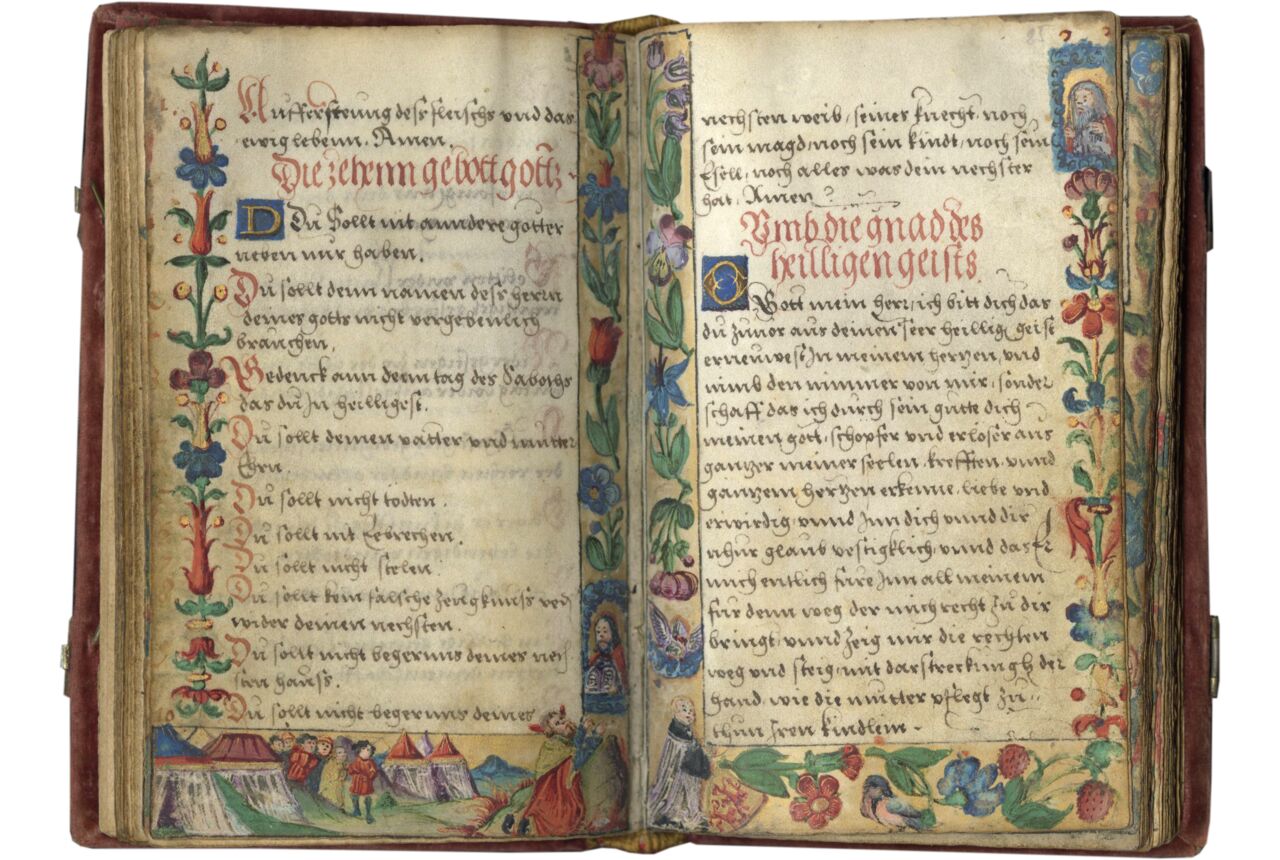 Auffersteung dess fleischs vnd das
ewig lebenn. Amen.
Die zehenn gebott gotts
Du Sollt nit anndere götter
neben mir haben.
Du sollt denn namen dess herrn
deines gotts nicht vergebenlich
brauchen.
Bedenck ann denn tag des Sabaths
das du In heilligest.
Du sollt deinen vatter vnd mutter
Ehrn.
Du sollt nicht todten.
Du sollt nit Eebrechen.
Du sollt nicht stelen.
Du sollt kein falsche zeugknuss red
wider deinen nechsten.
Du sollt nicht begernns deines nech
sten hauss.
Du sollt nicht begernns deines
nechsten weib, seines knecht, noch
sein magd, noch sein kindt, noch sein
Esell, noch alles was dein nechster
hat. Amen.
Vmb die gnad des
heilligen geists.
O Gott mein herr, ich bitt dich das
du zuuor aus deinen seer heillig geist
erneuwest In meinem hertzen, vnd
nimb den nimmer von mir, sonder
schaff das ich durch sein gutte dich
meinen gott, schopfer vnd erloser aus
gantzer meiner seelen, krefften, vnnd
gantzem hertzen erkenne, liebe vnd
erwirdig, vnnd Inn dich vnnd dir
nhur glaub vestigklich, vnnd das Er
mich entlich fure Inn all meinem
fur denn weg der mich recht zu dir
bringt, vnnd zeig mir die rechten
weg vnd steig, mit darstreckung der
hand, wie die mutter pflegt zu
thun Iren kindlein.